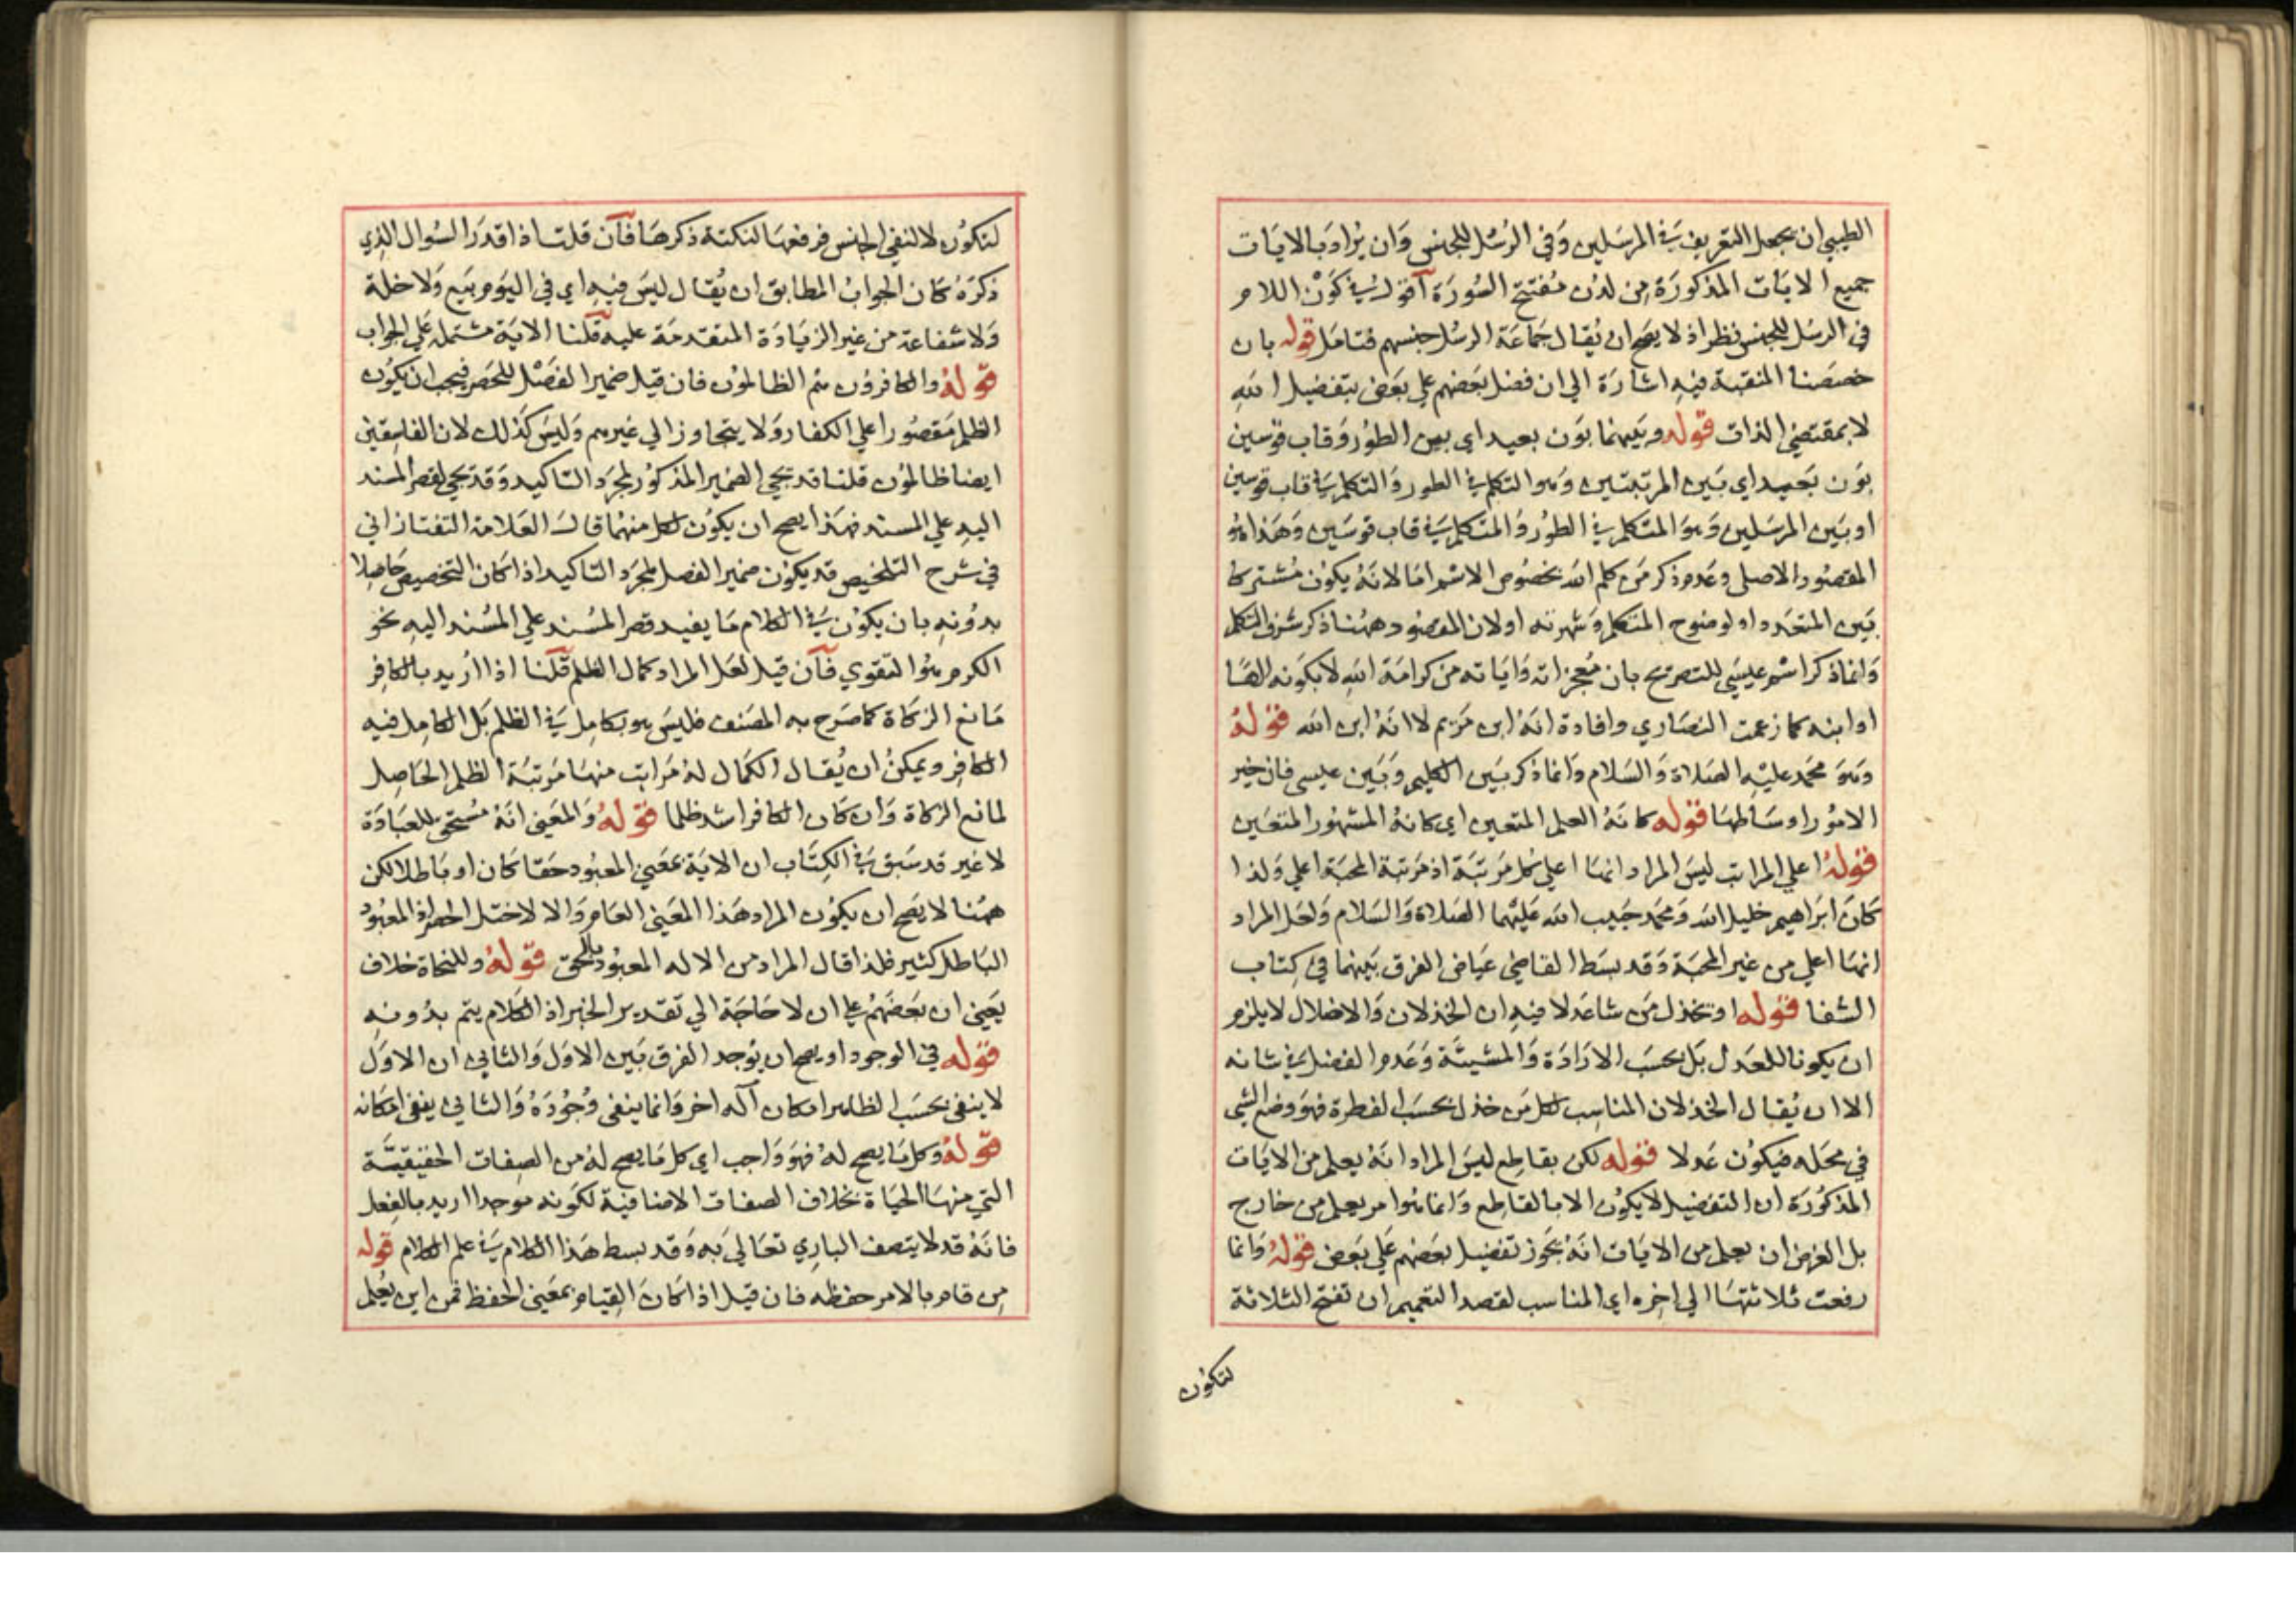 الطيبي ان يجعل التعريف في المرسلين وفي الرسل للجنس وان يراد بالايات
جميع الايات المذكورة من لدن مفتتح السورة آقول في كون اللام
في الرسل للجنس نظر اذ لا يصح ان يقال جماعة الرسل جنسهم فتامل قوله بان
خصصنا المنقبة فيه اشارة الي ان فضل بعضهم علي بعض بتفضيل الله
لا بمقتضي الذات قوله وبينهما بون بعيد اي بين الطور وقاب قوسين
بون بعيد اي بين المرتبتين وهو التكلم في الطور والتكلم في قاب قوسين
او بين المرسلين وهو المتكلم في الطور والمتكلم في قاب قوسين وهذا هو
المقصود الاصلي وعدم ذكر من كلم الله بخصوص الاسم اما لانه يكون مشتركا
بين المتعدد او لوضوح المتكلم وشهرته او لان المقصود ههنا ذكر شرف التكلم
وانما ذكر اسم عيسي للتصريح بان معجزاته واياته من كرامة الله لا بكونه الها
او ابنه كما زعمت النصاري وافادة انه ابن مريم لا انه ابن الله قوله
وهو محمد عليه الصلاة والسلام وانما ذكر بين الكليم وبين عيسي فان خير
الامور اوساطها قوله كانه العلم المتعين اي كانه المشهور المتعين
قوله اعلي المراتب ليس المراد انها اعلي كل مرتبة اذ مرتبة المحبة اعلي ولذا
كان ابراهيم خليل الله ومحمد حبيب الله عليهما الصلاة والسلام ولعل المراد
انها اعلي من غير المحبة وقد بسط القاضي عياض الفرق بينهما في كتاب
الشفا قوله او تخذل من شا عدلا فيه ان الخذلان والاضلال لا يلزم
ان يكونا للعدل بل بحسب الارادة والمشيئة وعدم الفضل في شانه
الا ان يقال الخذلان المناسب لكل من خذل بحسب الفطرة فهو وضع الشي
في محله فيكون عدلا قوله لكن بقاطع ليس المراد انه يعلم من الايات
المذكورة ان التفضيل لا يكون الا بالقاطع وانما هو امر يعلم من خارج
بل الغرض ان يعلم من الايات انه يجوز تفضيل بعضهم علي بعض قوله وانما
رفعت ثلاثتها الي اخره اي المناسب لقصد التعميم ان تفتح الثلاثة
لتكون
لتكون لا لنفي الجنس فرفعها لنكتة ذكرها فآن قلت اذا قدر السوال الذي
ذكره كان الجواب المطابق ان يقال ليس فيه اي في اليوم بيع ولا خلة
ولا شفاعة من غير الزيادة المتقدمة عليه قلنا الاية مشتملة علي الجواب
قوله والكافرون هم الظالمون فان قيل ضمير الفصل للحصر فيجب ان يكون
الظلم مقصورا علي الكفار ولا يتجاوز الي غيرهم وليس كذلك لان الفاسقين
ايضا ظالمون قلنا قد يجي الضمير المذكور لمجرد التاكيد وقد يجي لقصر المسند
اليه علي المسند فهذا يصح ان يكون لكل منهما قال العلامة التفتازاني
في شرح التلخيص قد يكون ضمير الفصل لمجرد التاكيد اذا كان التخصيص حاصلا
بدونه بان يكون في الكلام ما يفيد قصر المسند علي المسند اليه نحو
الكرم هو التقوي فآن قيل لعل المراد كمال الظلم قلنا اذا اريد بالكافر
مانع الزكاة كما صرح به المصنف فليس هو بكامل في الظلم بل الكامل فيه
الكافر ويمكن ان يقال الكمال له مراتب منها مرتبة الظلم الحاصل
لمانع الزكاة وان كان الكافر اشد ظلما قوله والمعني انه مستحق للعبادة
لا غير قد سبق في الكتاب ان الاية بمعني المعبود حقا كان او باطلا لكن
ههنا لا يصح ان يكون المراد هذا المعني العام والا لاختل الحصر اذ المعبود
الباطل كثير فلذا قال المراد من الاله المعبود بالحق قوله وللنحاة خلاف
يعني ان بعضهم علي ان لا حاجة الي تقدير الخبر اذ الكلام يتم بدونه
قوله في الوجود او يصح ان يوجد الفرق بين الاول والثاني ان الاول
لا ينفي بحسب الظاهر امكان آله اخر وانما ينفي وجوده والثاني ينفي امكانه
قوله وكل ما يصح له فهو واجب اي كل ما يصح له من الصفات الحقيقية
التي منها الحياة بخلاف الصفات الاضافية لكونه موجدا اريد بالفعل
فانه قد لا يتصف الباري تعالي به وقد بسط هذا الكلام في علم الكلام قوله
من قام بالامر حفظه فان قيل اذا كان القيام بمعني الحفظ فمن اين يعلم